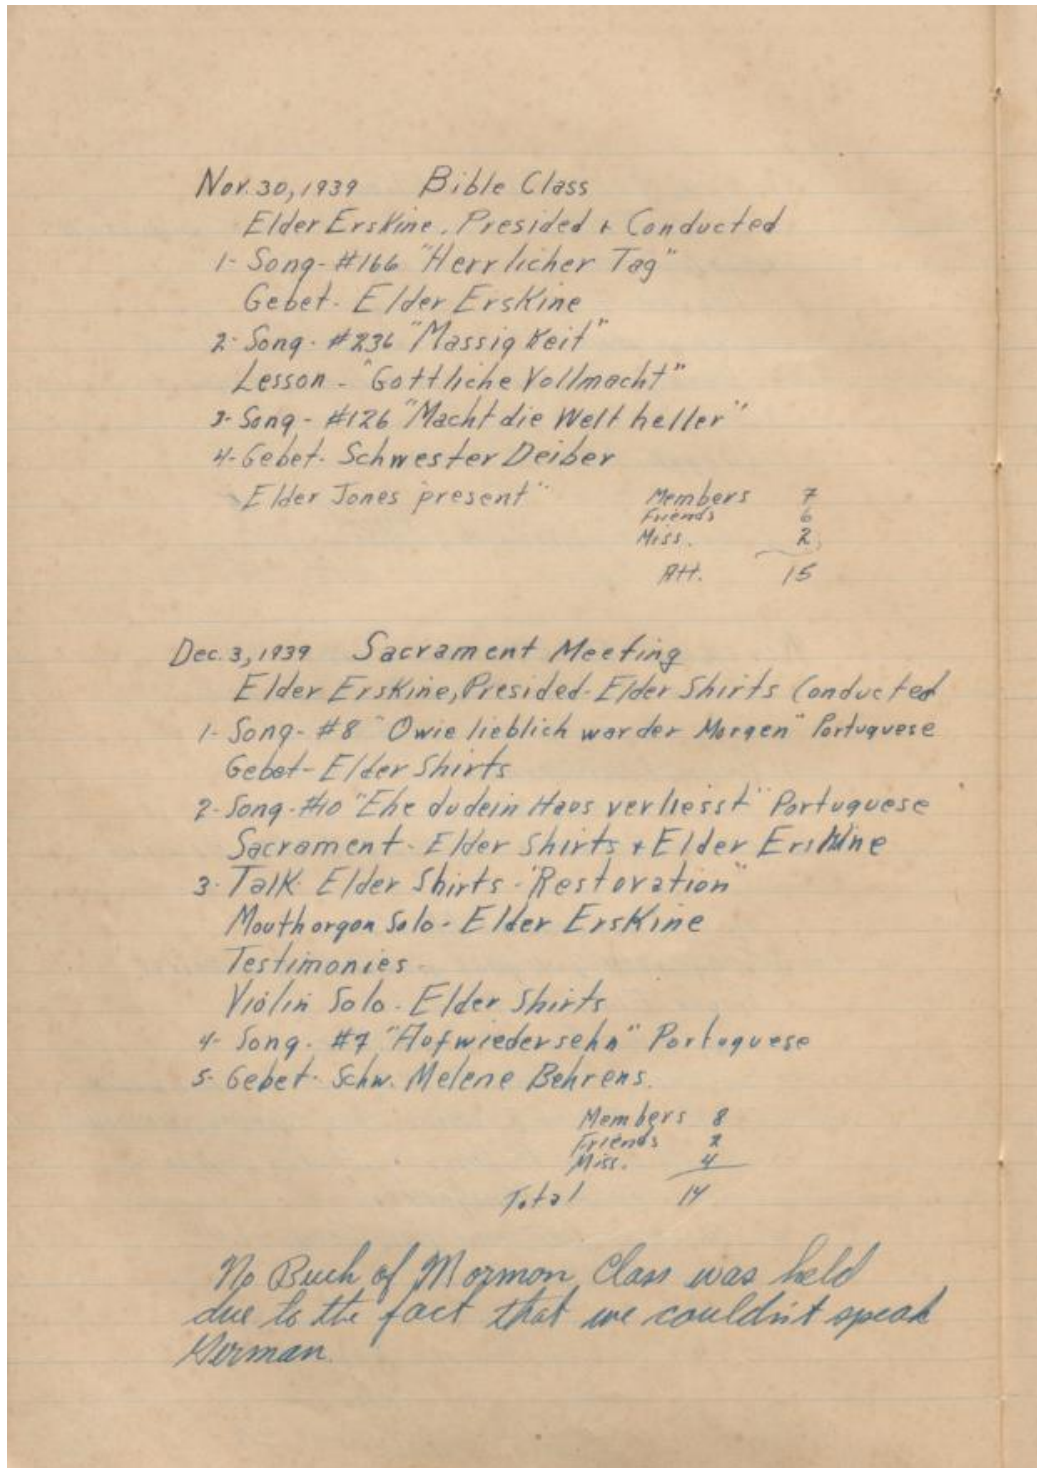 Nov. 30, 1939 Bible Class
Elder Erskine. Presided + Conducted
1- Song- #166 "Herrlicher Tag"
Gebet- Elder Erskine
2- Song- #236 "Massig Keit"
Lesson - "Gottliche Vollmacht"
3- Song - #126 "Macht die Welt heller"
4- Gebet- Schwester Deiber
"Elder Jones present"
Members 7
Friends 6
Miss. 2
Att. 15
Dec. 3, 1939 Sacrament Meeting
Elder Erskine, Presided- Elder Shirts Conducted
1- Song- #8 "O wie lieblich war der Morgen" Portuguese
Gebet- Elder Shirts
2- Song- #10 "Ehe du dein Haus verliesst" Portuguese
Sacrament- Elder Shirts + Elder Erskine
3- Talk- Elder Shirts - "Restoration"
Mouthorgan Solo- Elder Erskine
Testimonies-
Violin Solo- Elder Shirts
4- Song- #7 "Aufwiedersehn" Portuguese
5- Gebet- Schw. Melene Behrens.
Members 8
Friends 2
Miss. 4
Total 14
No Buch of Mormon Class was held
due to the fact that we couldn't speak
German.